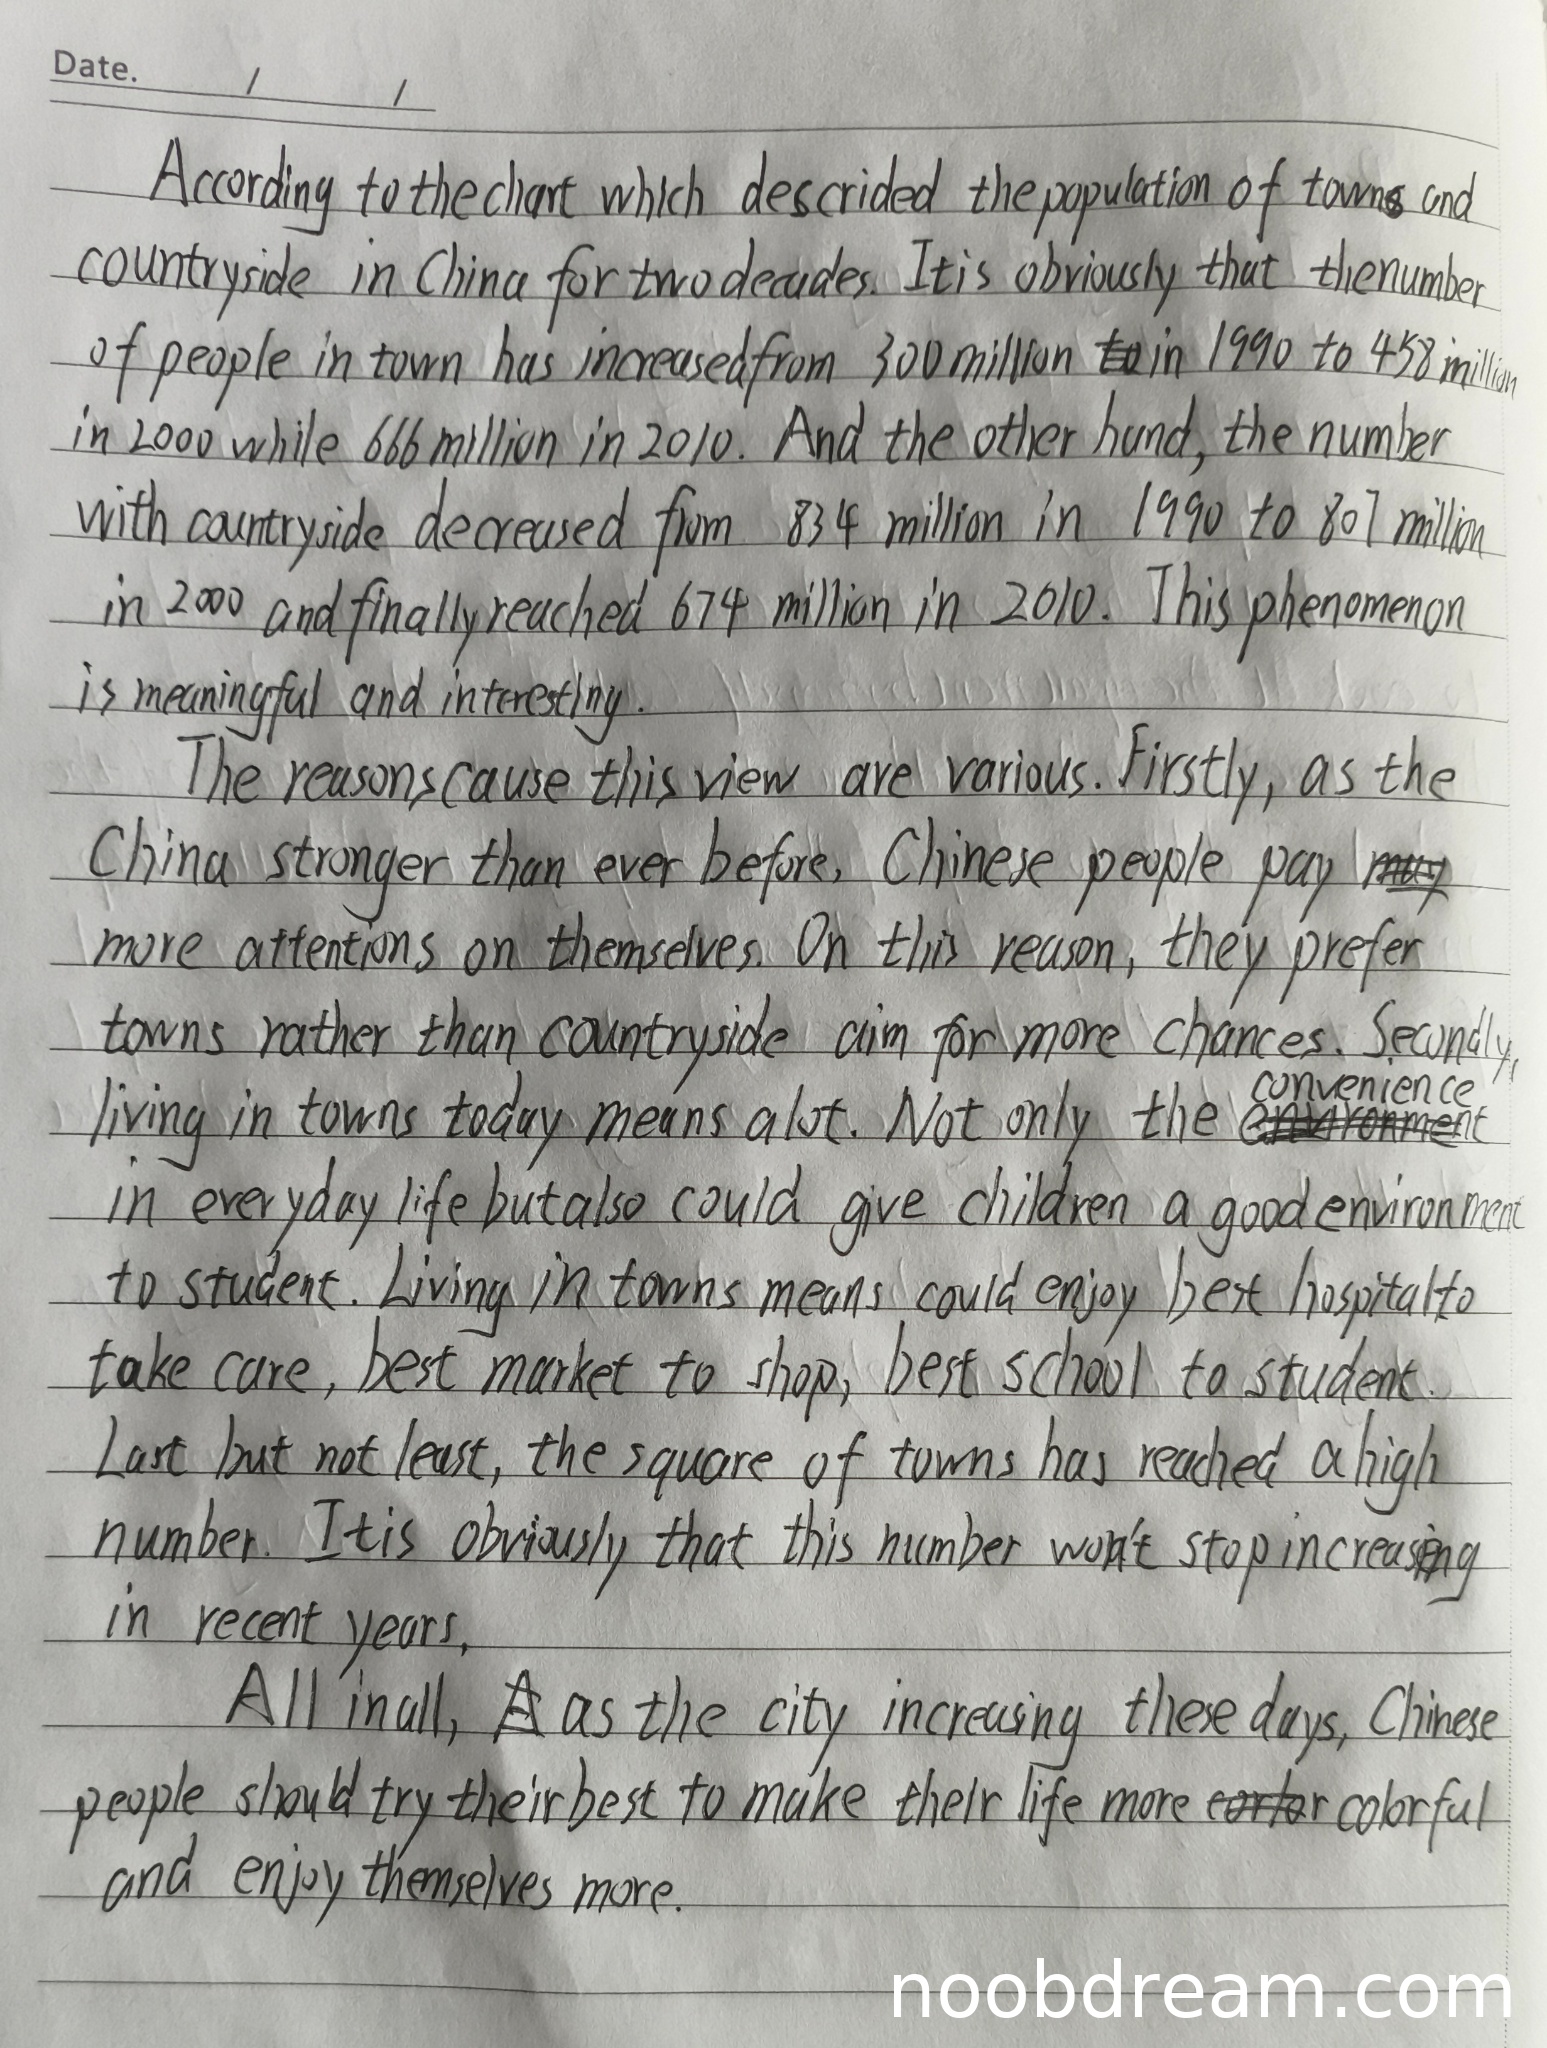 Date. / /
According to the chart which descrided the population of towns and
countryside in China for two decades. It is obviously that the number
of people in town has increased from 300 million in 1990 to 458 million
in 2000 while 666 million in 2010. And the other hand, the number
with countryside decreased from 834 million in 1990 to 807 million
in 2000 and finally reached 674 million in 2010. This phenomenon
is meaningful and interesting.
The reasons cause this view are various. Firstly, as the
China stronger than ever before, Chinese people pay
more attentions on themselves. On this reason, they prefer
towns rather than countryside aim for more chances. Secondly,
living in towns today means a lot. Not only the convenience
in everyday life but also could give children a good environment
to student. Living in towns means could enjoy best hospital to
take care, best market to shop, best school to student.
Last but not least, the square of towns has reached a high
number. It is obviously that this number won't stop increasing
in recent years.
All in all, as the city increasing these days, Chinese
people should try their best to make their life more colorful
and enjoy themselves more.
noobdream.com